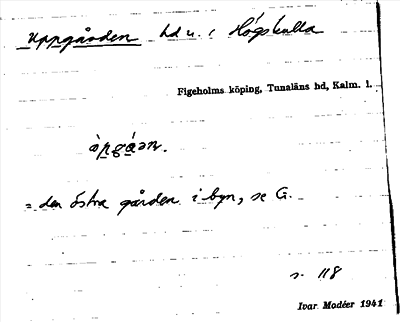 Uppgården hd u. i Högskulla
Figeholms köping, Tunaläns hd, Kalm. l.
òpgá̱ən.
= den östra gården i byn, se G.
s. 118
Ivar Modéer 1941